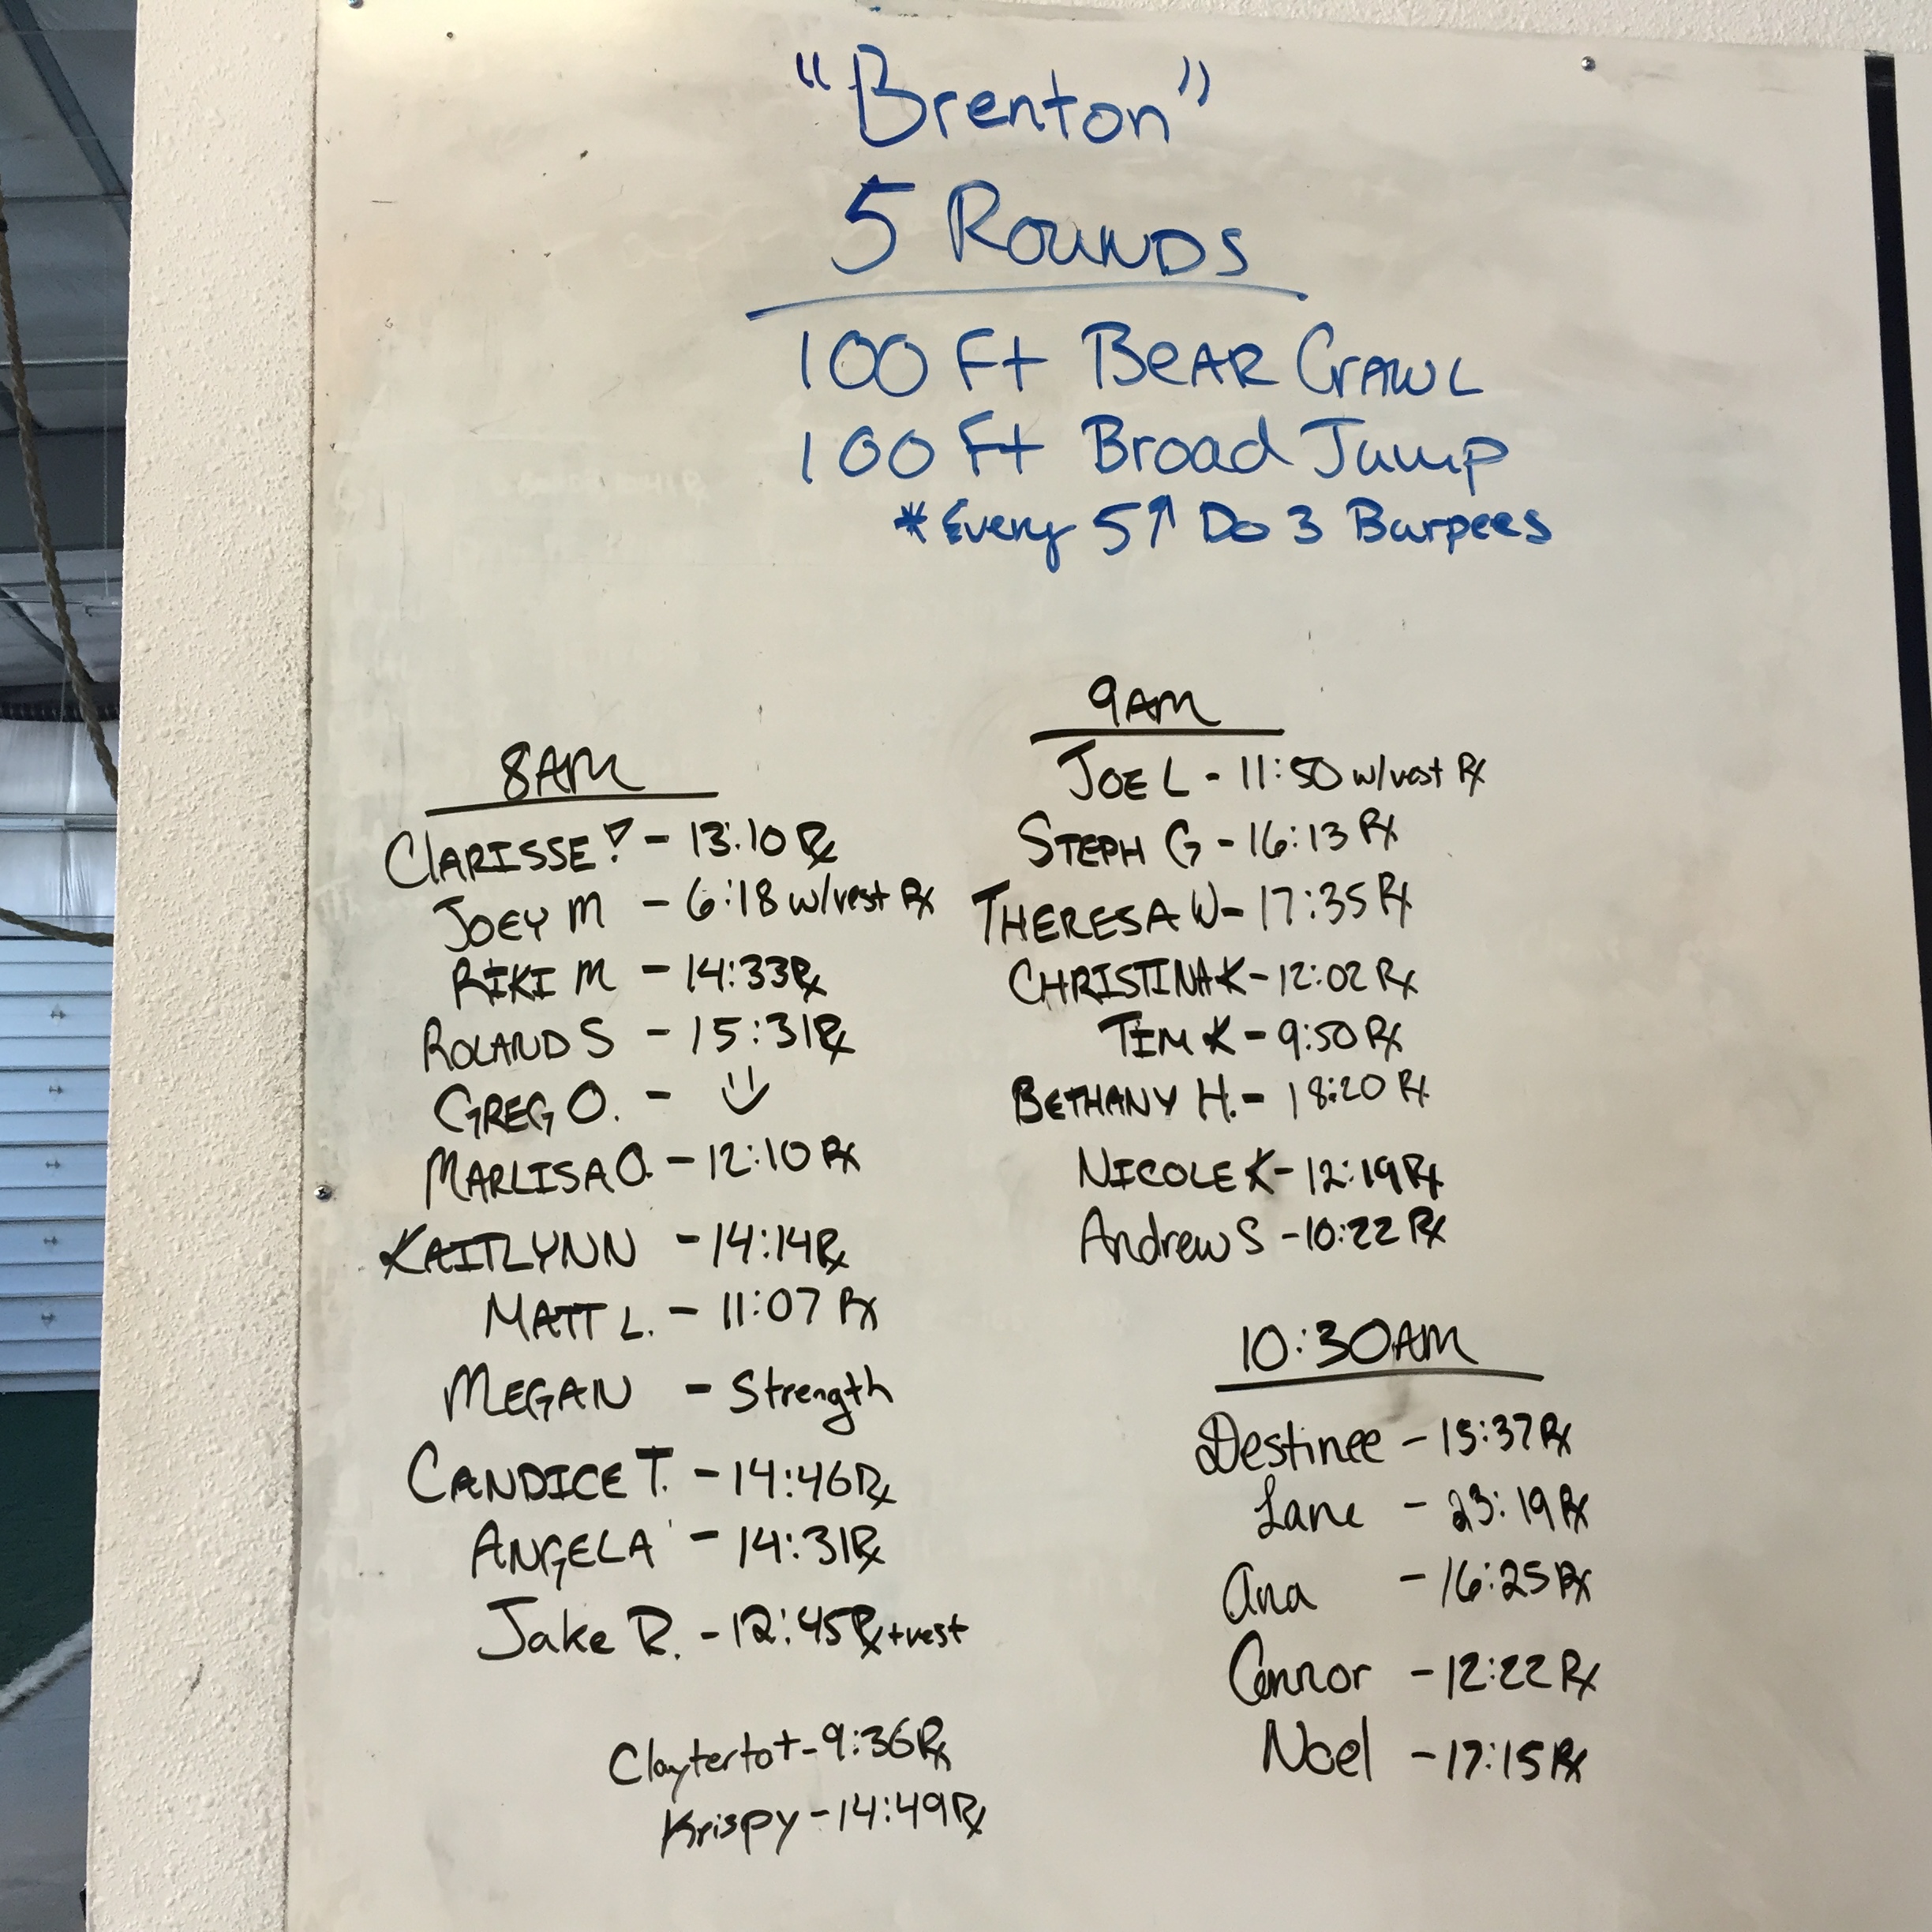 "Brenton"
5 Rounds
100 Ft Bear Crawl
100 Ft Broad Jump
*Every 5↑ Do 3 Burpees
8AM
CLARISSE! - 13:10 Rx
JOEY M - 6:18 w/vest Rx
RIKI M - 14:33 Rx
ROLAND S - 15:31 Rx
GREG O. - :)
MARLISA O. - 12:10 Rx
KAITLYNN - 14:14 Rx
MATT L. - 11:07 Rx
MEGAN - Strength
CANDICE T. - 14:46 Rx
ANGELA - 14:31 Rx
Jake R. - 12:45 Rx + vest
Claytertot - 9:36 Rx
Krispy - 14:49 Rx
9AM
JOE L - 11:50 w/vest Rx
STEPH G - 16:13 Rx
THERESA W - 17:35 Rx
CHRISTINA K - 12:02 Rx
TIM K - 9:50 Rx
BETHANY H. - 18:20 Rx
NICOLE K - 12:19 Rx
Andrew S - 10:22 Rx
10:30AM
Destinee - 15:37 Rx
Lane - 23:19 Rx
Ana - 16:25 Rx
Connor - 12:22 Rx
Noel - 17:15 Rx